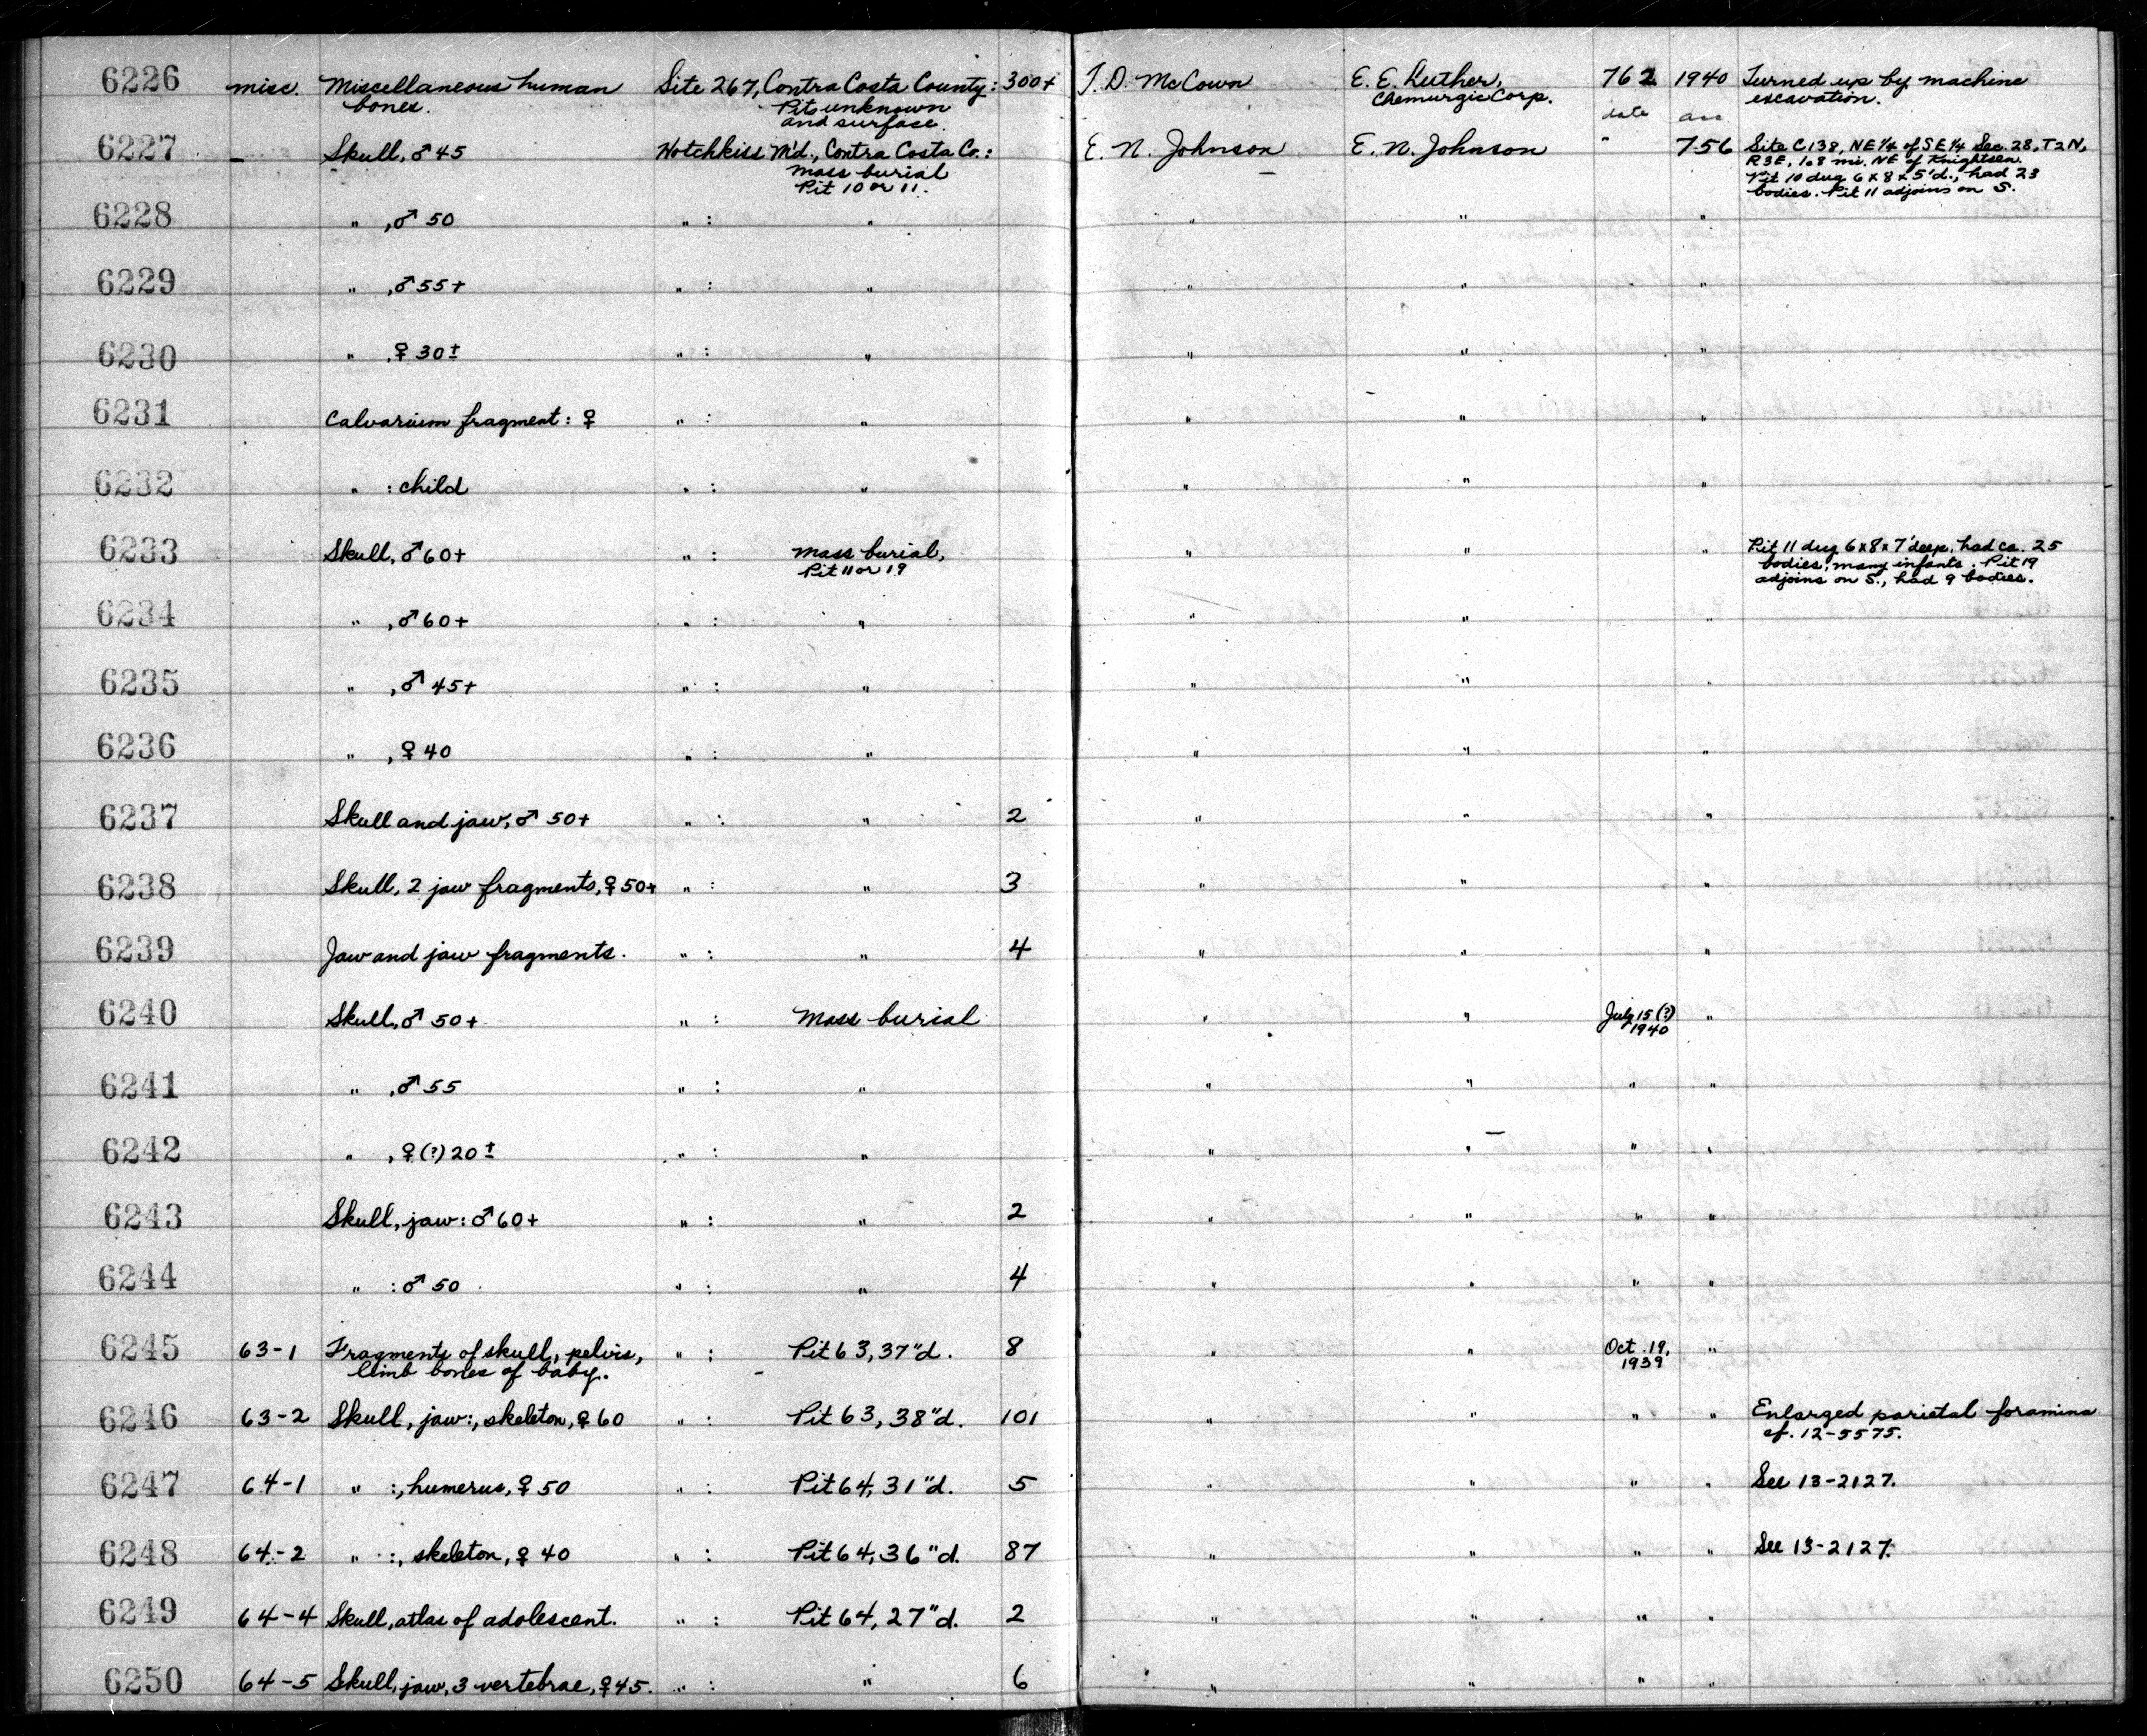 6226 misc. Miscellaneous human Site 267, Contra Costa County: 300+ T. D. McCown E. E. Luther, 762 1940 Turned up by machine
bones. Pit unknown Chemurgic Corp. excavation.
and surface. date acc
6227 — Skull, ♂ 45 Hotchkiss M'd., Contra Costa Co.: E. N. Johnson E. N. Johnson - 756 Site C.138, NE ¼ of SE ¼ Sec. 28, T2N,
mass burial R3E, 1.8 mi. NE of Knightsen.
Pit 10 or 11. Pit 10 dug 6 x 8 x 5'd., had 23
bodies. Pit 11 adjoins on S.
6228 " , ♂ 50 " : " " " "
6229 " , ♂ 55+ " : " " " "
6230 " , ♀ 30± " : " " " "
6231 Calvarium fragment: ♀ " : " " " "
6232 " : child " : " " " "
6233 Skull, ♂ 60+ " : mass burial, " " " Pit 11 dug 6x8x7' deep, had ca. 25
Pit 11 or 19 bodies; many infants. Pit 19
adjoins on S., had 9 bodies.
6234 " , ♂ 60+ " : " " " "
6235 " , ♂ 45+ " : " " " "
6236 " , ♀ 40 " : " " " "
6237 Skull and jaw, ♂ 50+ " : " 2 " " "
6238 Skull, 2 jaw fragments, ♀ 50+ " : " 3 " " "
6239 Jaw and jaw fragments. " : " 4 " " "
6240 Skull, ♂ 50+ " : Mass burial " " July 15 (?) "
1940
6241 " , ♂ 55 " : " " " " "
6242 " , ♀ (?) 20± " : " " " " "
6243 Skull, jaw: ♂ 60+ " : " 2 " " " "
6244 " : ♂ 50 " : " 4 " " " "
6245 63-1 Fragments of skull, pelvis, " : Pit 63, 37"d. 8 " " Oct. 19, "
limb bones of baby. 1939
6246 63-2 Skull, jaw:, skeleton, ♀ 60 " : Pit 63, 38"d. 101 " " " " Enlarged parietal foramina
cf. 12-5575.
6247 64-1 " :, humerus, ♀ 50 " : Pit 64, 31"d. 5 " " " " See 13-2127.
6248 64-2 " :, skeleton, ♀ 40 " : Pit 64, 36"d. 87 " " " " See 13-2127.
6249 64-4 Skull, atlas of adolescent. " : Pit 64, 27"d. 2 " " " "
6250 64-5 Skull, jaw, 3 vertebrae, ♀ 45. " : " 6 " " " "